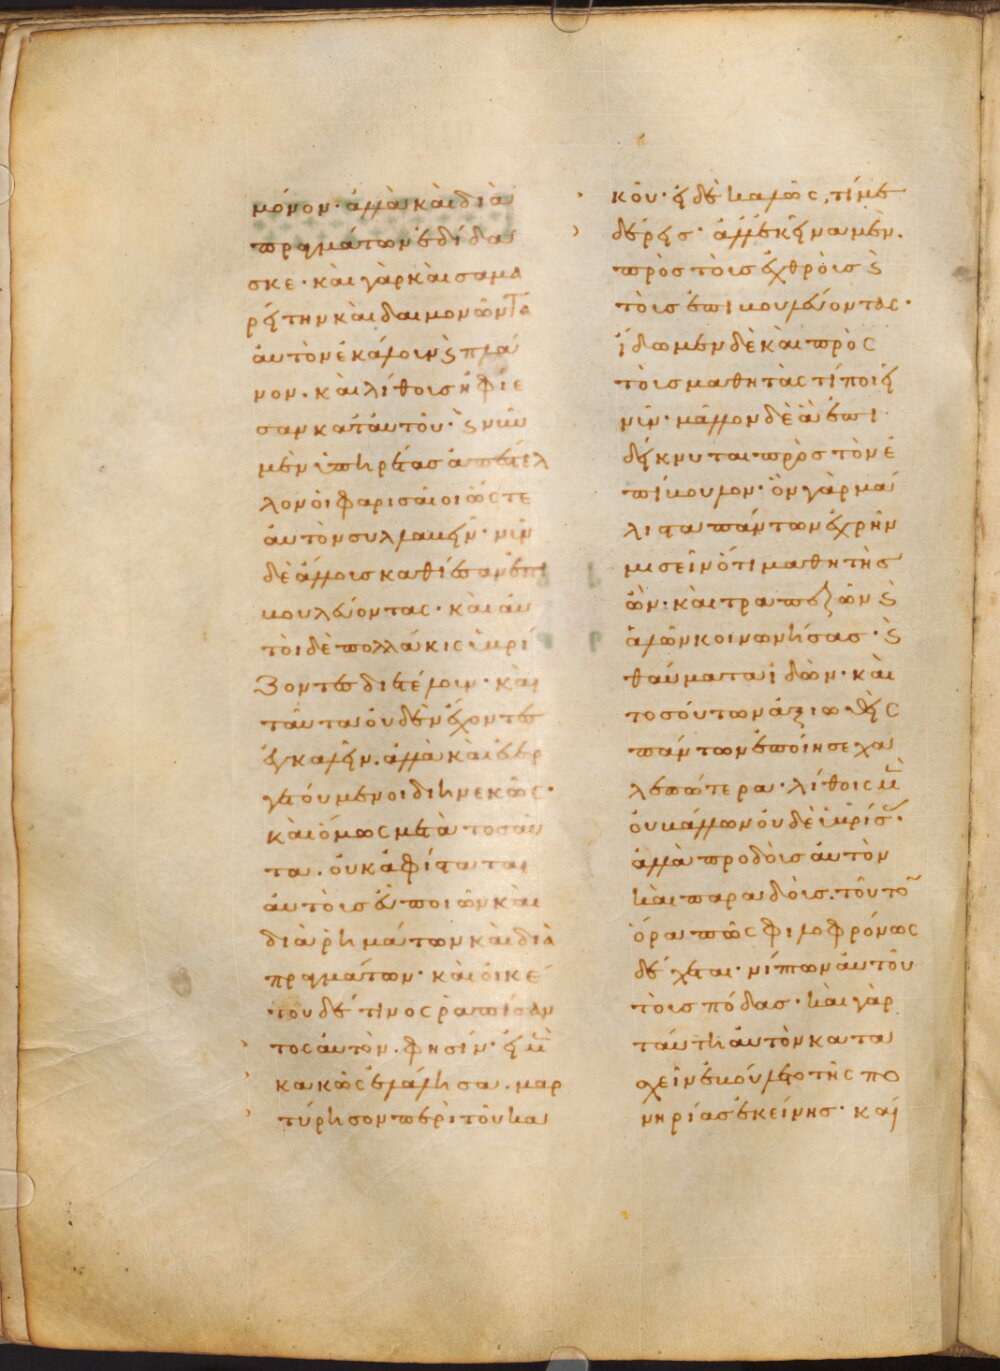 μόνον· ἀλλὰ καὶ διὰ
πραγμάτων ἐδίδα
σκε· καὶ γὰρ καὶ σαμα
ρείτην καὶ δαιμονῶντα
αὐτὸν ἐκάλουν ϗ πλά
νον. καὶ λίθοις ἠφίε
σαν κατ' αὐτοῦ· ϗ νῦν
μὲν ὑπηρέτας ἀπέστελ
λον οἱ φαρισαῖοι ὥστε
αὐτὸν συλλαβεῖν· νῦν
δὲ ἄλλοις καθίεσαν ἐπι
βουλεύοντας· καὶ αὐ
τοὶ δὲ πολλάκις ὑβρί
ζοντες διετέλουν· καὶ
ταῦτα οὐδὲν ἔχοντες
ἐγκαλεῖν. ἀλλὰ καὶ εὐερ
γετούμενοι διηνεκῶς·
καὶ ὅμως μετὰ τοσαῦ
τα. οὐκ ἀφίσταται
αὐτοῖς εὖ ποιῶν καὶ
διὰ ῥημάτων καὶ διὰ
πραγμάτων· καὶ οἰκέ
του δέ τινος ῥαπίσαν
τος αὐτὸν. φησίν· εἰ μὲν
κακῶς ἐλάλησα. μαρ
τύρησον περὶ τοῦ κα
κοῦ· εἰ δὲ καλῶς, τί με
δέρεις· ἀλλ' ἐκεῖνα μὲν.
πρὸς τοὺς ἐχθροὺς ϗ
τοὺς ἐπιβουλεύοντας·
ἴδωμεν δὲ καὶ πρὸς
τοὺς μαθητὰς τί ποιεῖ
νῦν· μᾶλλον δὲ ἃ ἐπι
δείκνυται πρὸς τὸν ἐ
πίβουλον· ὃν γὰρ μά
λιστα πάντων ἐχρῆν
μισεῖν ὅτι μαθητὴς
ὢν· καὶ τραπεζῶν ϗ
ἁλῶν κοινωνήσας· ϗ
θαύματα ἰδὼν· καὶ
τοσούτων ἀξιωθεὶς
πάντων ἐποίησε χα
λεπώτερα· λίθοις μὲν
οὐ βάλλων οὐδὲ ὑβρίσας·
ἀλλὰ προδοὺς αὐτὸν
καὶ παραδούς. τοῦτον
ὅρα πῶς φιλοφρόνως
δέχεται· νίπτων αὐτοῦ
τοὺς πόδας· καὶ γὰρ
ταύτη αὐτὸν κατα
σχεῖν ἐβούλετο τῆς πο
νηρίας ἐκείνης· καί